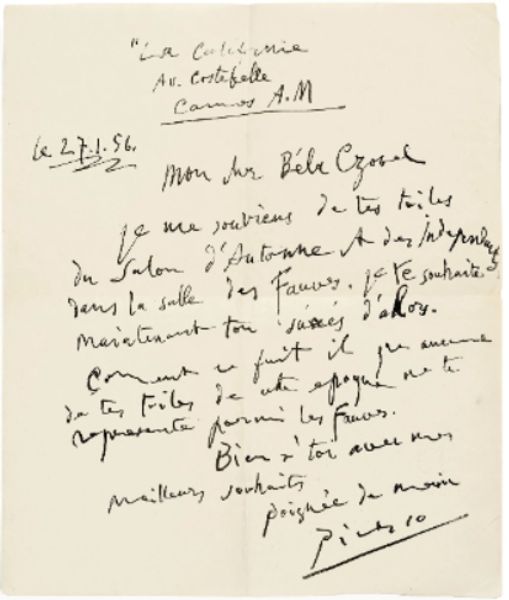 "La Californie
Av. Costebelle
Cannes A.M
le 27.1.56.
Mon cher Béla Czobel
je me souviens de tes toiles
du Salon d'Automne et des Indépendants
dans la salle des Fauves. je te souhaite
maintenant ton succès d'alors.
Coment ce fait il que aucune
de tes toiles de cette epoque ne te
represente parmi les Fauves.
Bien à toi avec mes
meilleurs souhaits
poignée de main
Picasso